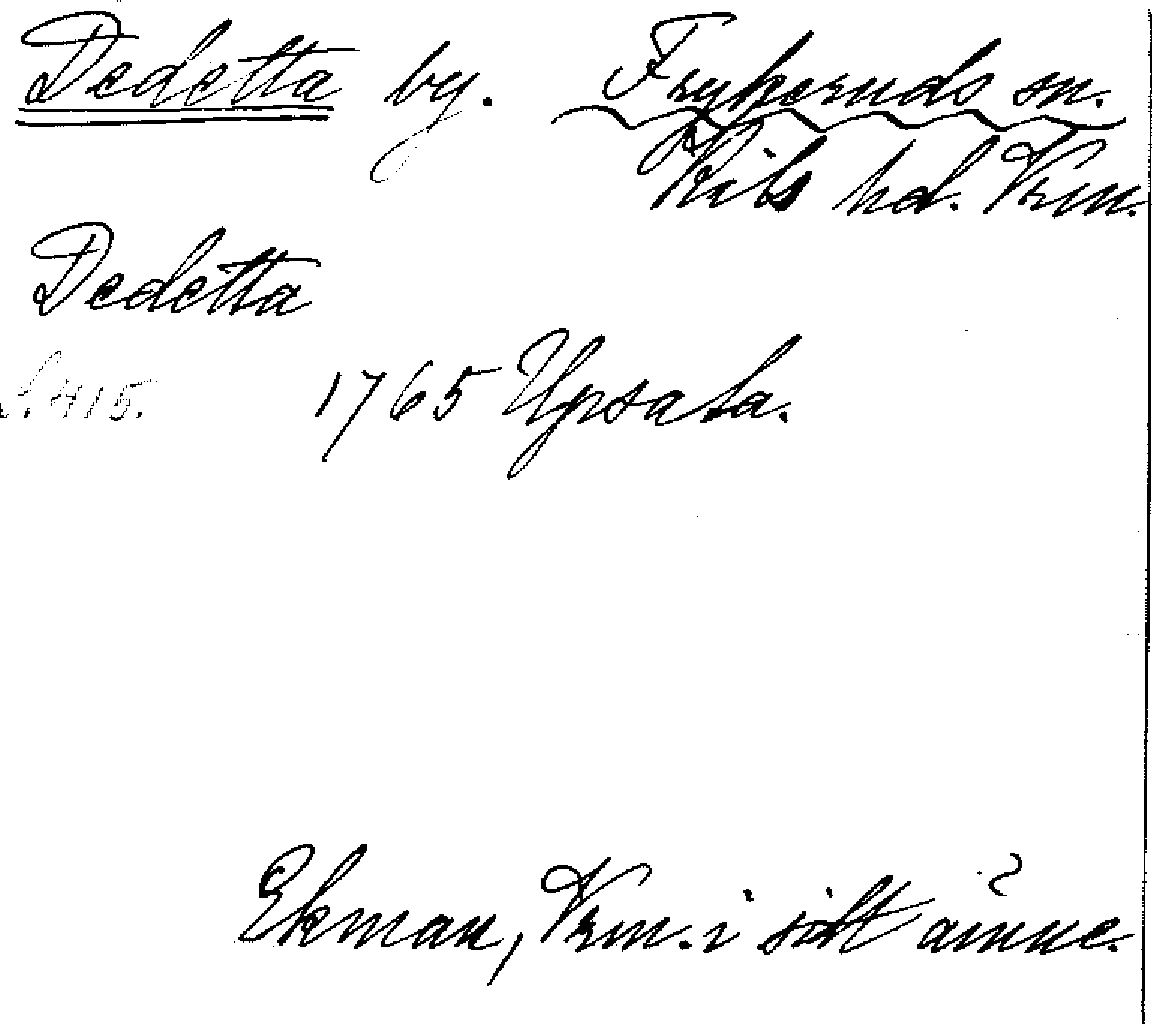 Dedetta by. Frykeruds sn.
Kils hd. Vrm.
Dedetta
S. 415. 1765 Upsala.
Ekman, Vrm. i sitt ämne.